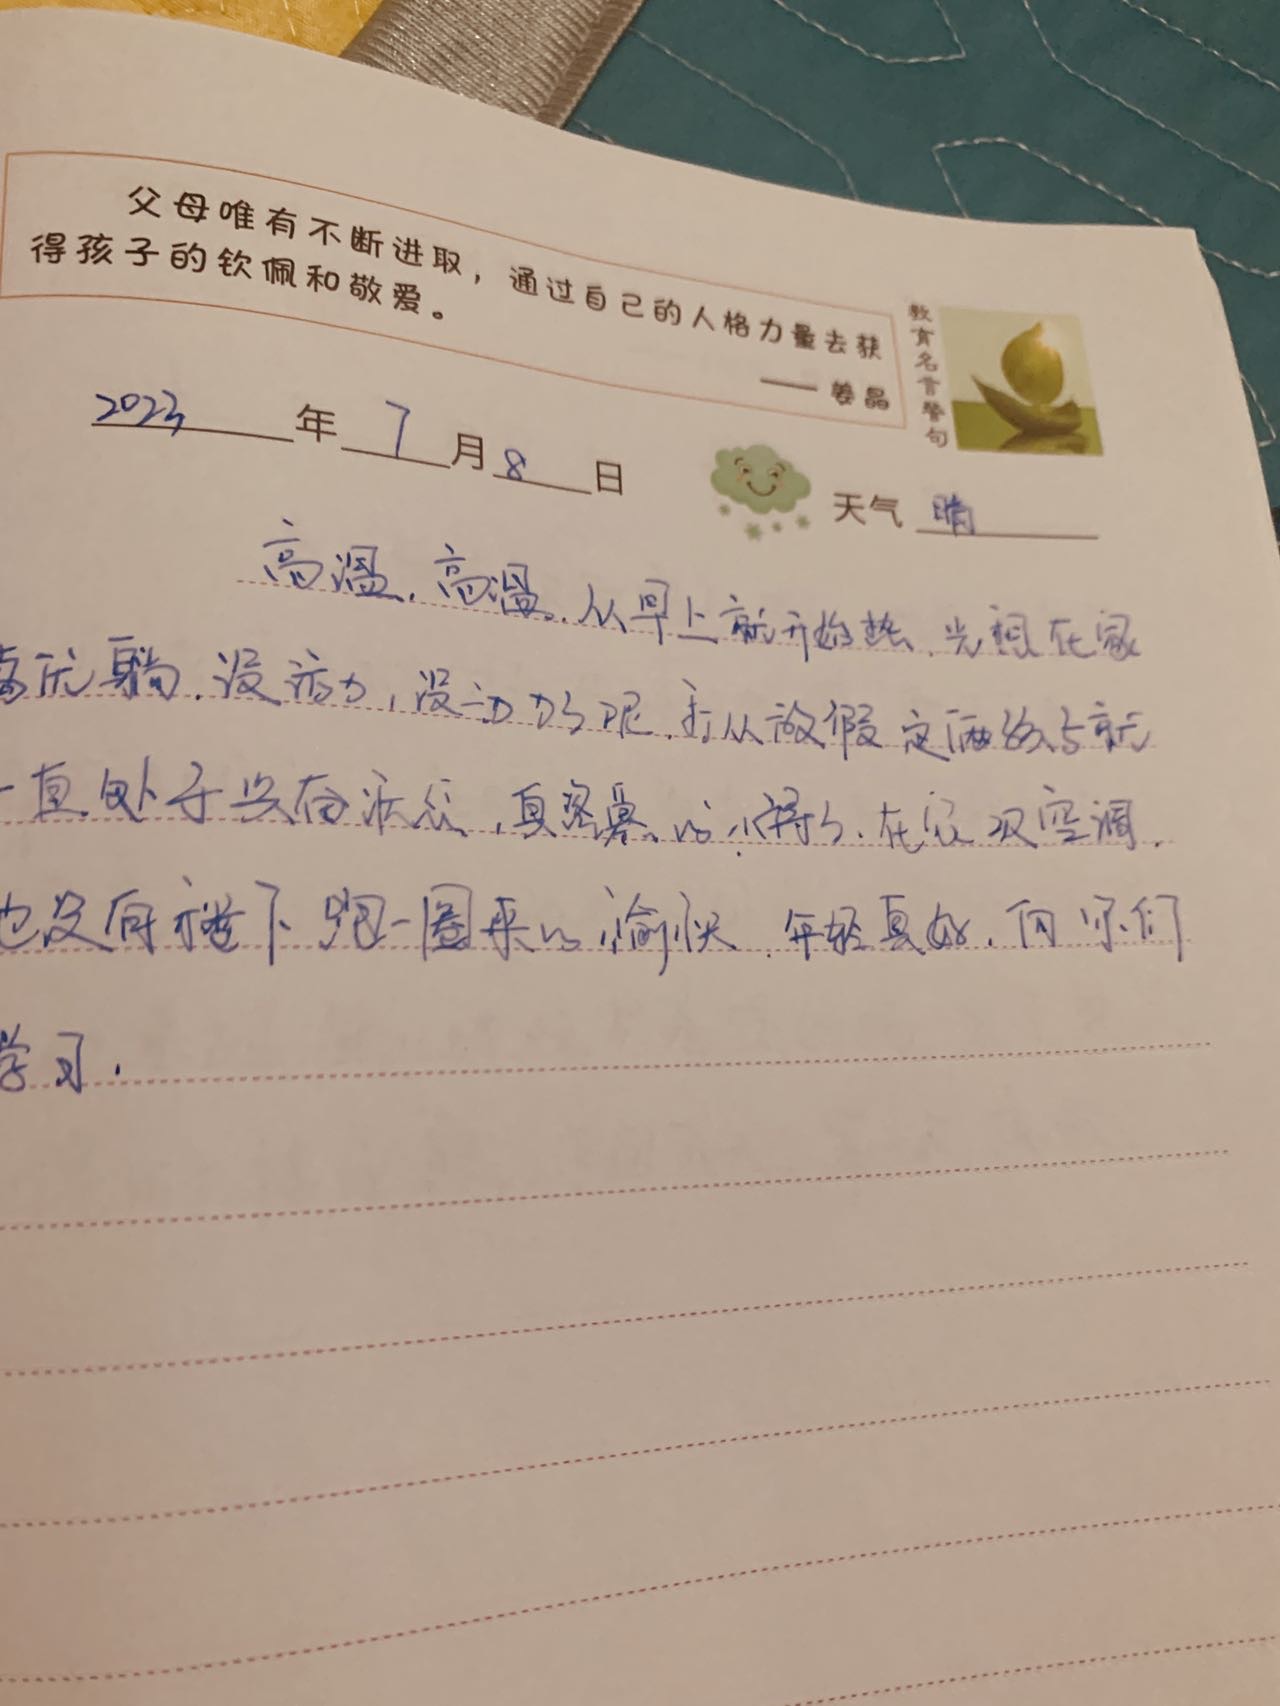 父母唯有不断进取，通过自己的人格力量去获
得孩子的钦佩和敬爱。
——姜晶
教育名言警句
2023年7月8日
天气 晴
高温，高温，从早上就开始热，光想在家
躺，没活力，没动力呢，从放假定俩的就
一直处于兴奋状态，真羡慕，在家吹空调，
也没有楼下跑一圈来的愉快，年轻真好，向你们
学习．